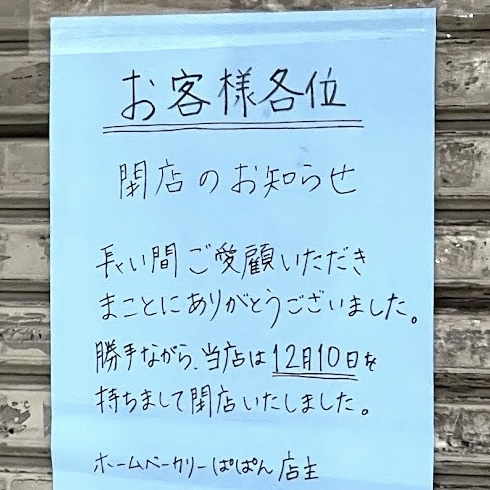 お客様各位
閉店のお知らせ
長い間ご愛顧いただき
まことにありがとうございました。
勝手ながら、当店は12月10日を
持ちまして閉店いたしました。
ホームベーカリーぱぱん店主